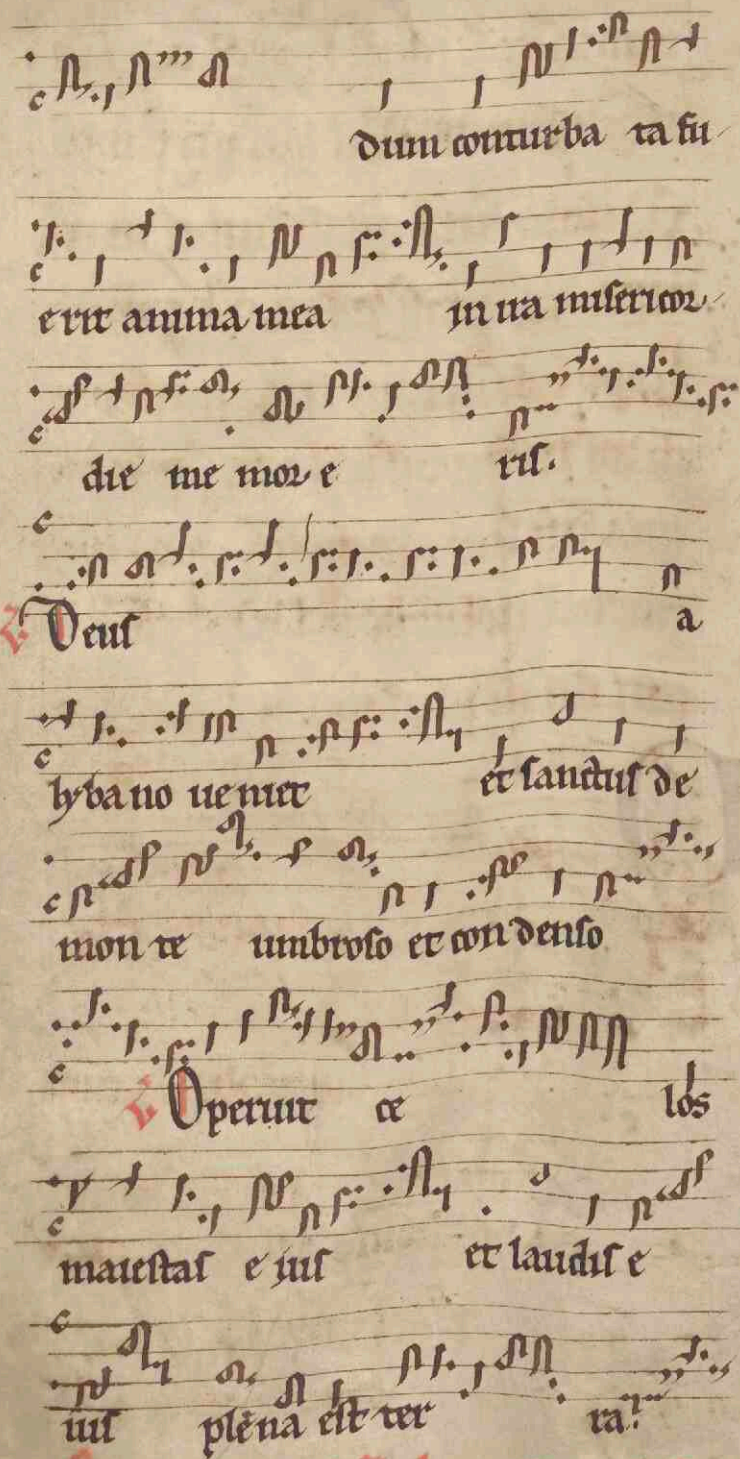 dum conturba ta fu
erit anima mea in ira misericor
die me mor e ris.
V. Deus a
lybano veniet et sanctus de
mon te umbroso et condenso
V. Operuit ce los
maiestas e ius et laudis e
ius plena est ter ra.